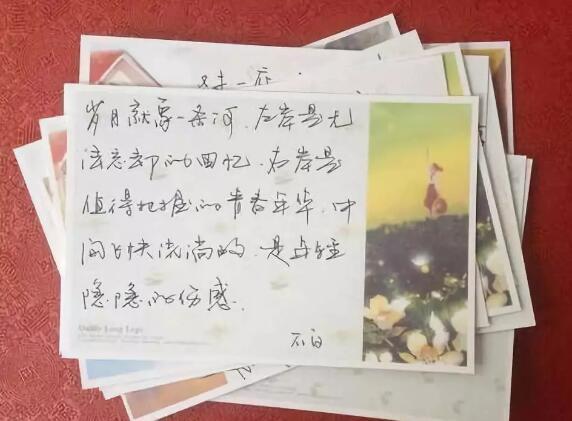 对一座
岁月就象一条河.左岸是无
法忘却的回忆.右岸是
值得把握的青春年华.中
间飞快流淌的.是年轻
隐隐的伤感.
Daddy Long Legs
石白